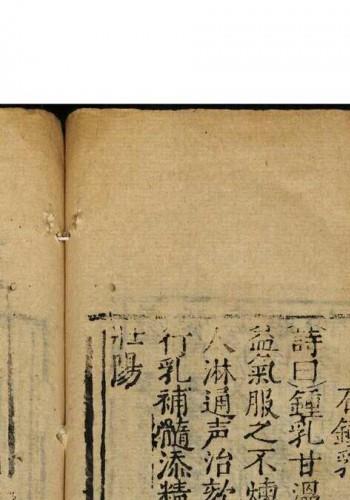 石鍾乳
詩曰鍾乳甘溫
益氣服之不煉
人淋通声治欬
行乳補髓添精
壯陽